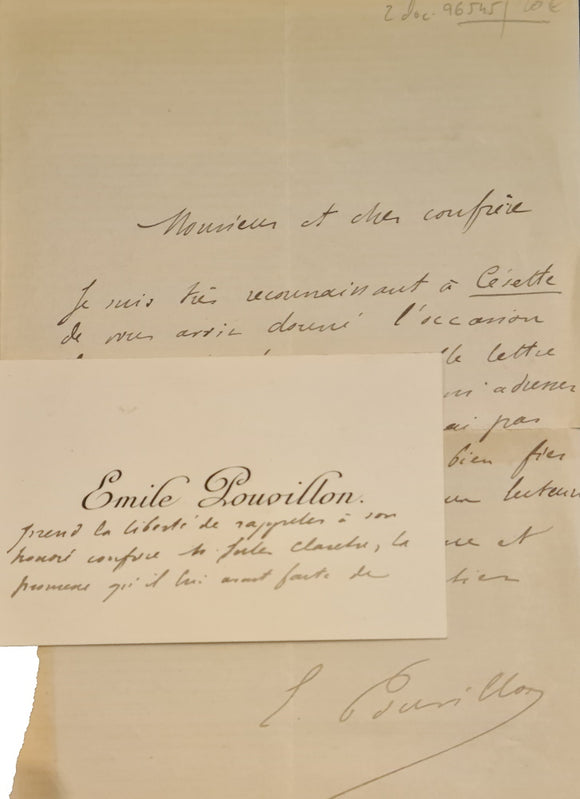 2 doc. 96545/
Monsieur et cher confrère
Je suis très reconnaissant à Césette
de vous avoir donné l'occasion
lle lettre
adresser
ai pas
bien fier
un lecteur
et
Emile Pouvillon.
prend la liberté de rappeler à son
honoré confrère M. Jules Claretie, la
promesse qu'il lui avait faite de
E Pouvillon